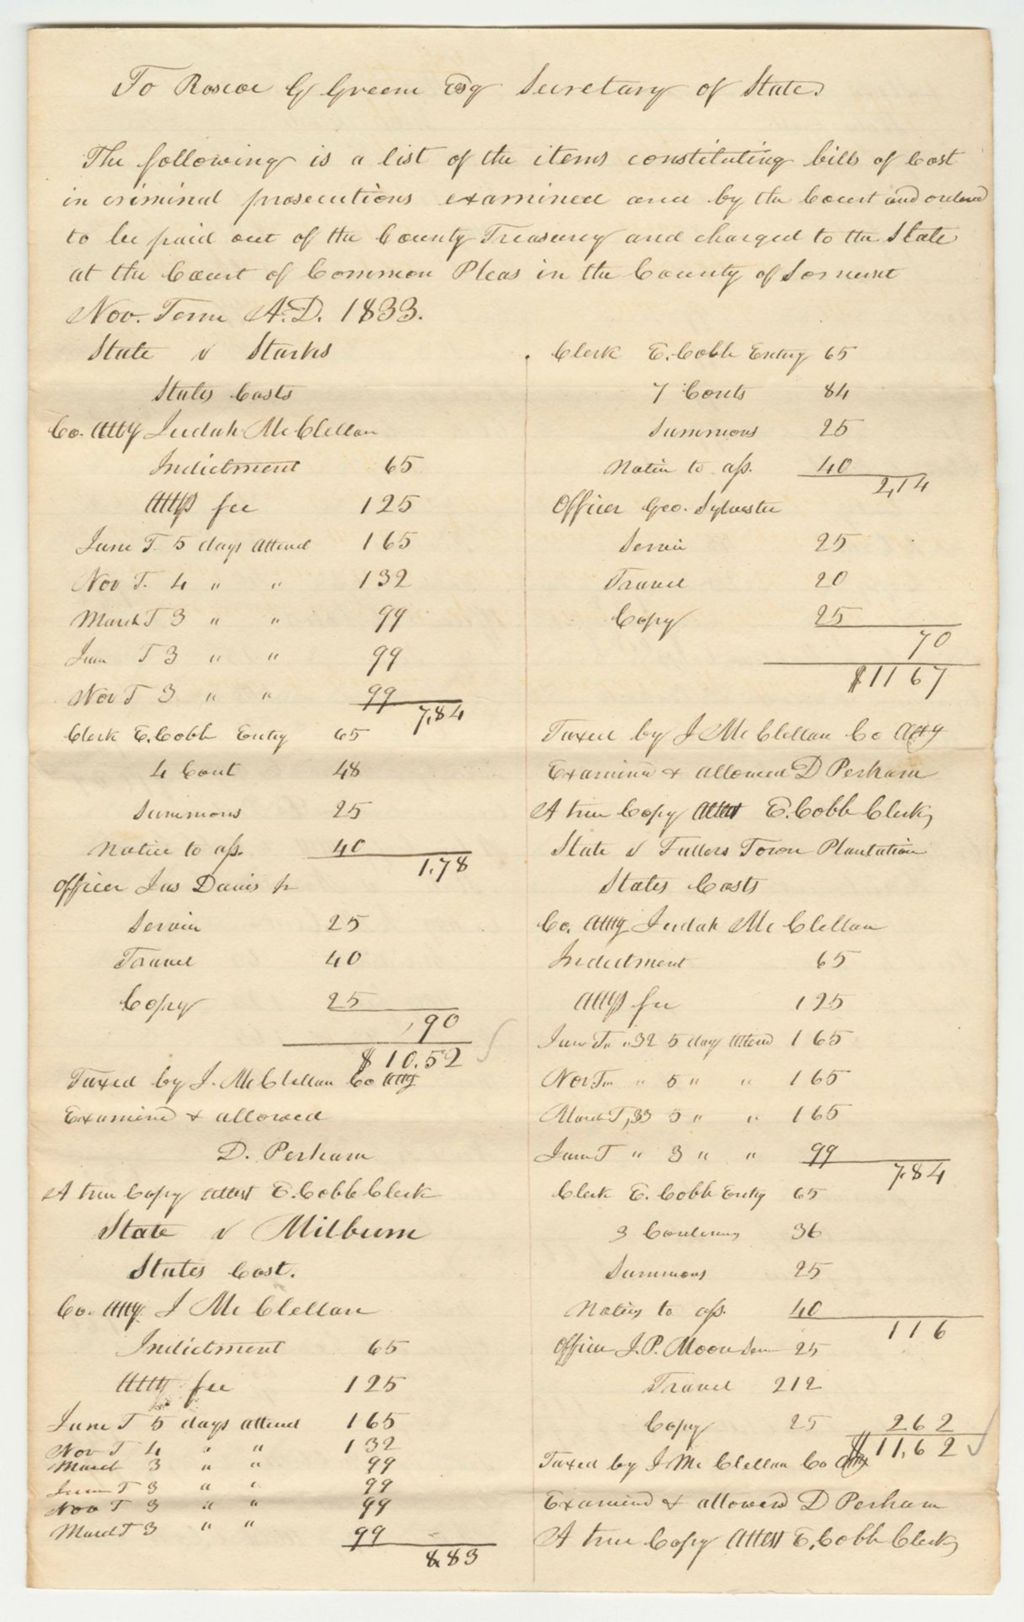 To Roscoe G Greene Esq Secretary of State.
The following is a list of the items constituting bills of Cost
in criminal prosecutions examined and by the Court and ordered
to be paid out of the County Treasury and charged to the State
at the Court of Common Pleas in the County of Somerset
Nov. Term A.D. 1833.
State v Starks
States Costs
Co. Atty Judah McClellan
Indictment 65
Attys fee 125
June T. 5 days attend 165
Nov T. 4 " " 132
March T 3 " " 99
June T 3 " " 99
Nov T 3 " " 99
7,84
Clerk E. Cobb Entry 65
4 Cont 48
Summons 25
Notice to ap. 40
1,78
Officer Jas Davis Jr
Service 25
Travel 40
Copy 25
,90
$10.52
Taxed by J. McClellan Co Atty
Examined & allowed
D. Perham
A true Copy attest E. Cobb Clerk
State v Milburn
States Cost.
Co. Atty. J McClellan
Indictment 65
Atty fee 125
June T 5 days attend 165
Nov T 4 " " 132
March 3 " " 99
June T 3 " " 99
Nov T 3 " " 99
March T 3 " " 99
8,83
Clerk E. Cobb Entry 65
7 Conts 84
Summons 25
Notice to ap. 40
2,14
Officer Geo. Sylvester
Service 25
Travel 20
Copy 25
70
$11 67
Taxed by J McClellan Co Atty
Examined & allowed D Perham
A true Copy Attest E. Cobb Clerk
State v Fullers Town Plantation
States Costs
Co. Atty Judah McClellan
Indictment 65
Attys fee 125
June T. 32 5 days attend 165
Nov T. " 5 " " 165
March T, 33 5 " " 165
June T " 3 " " 99
7,84
Clerk E. Cobb Entry 65
3 Continus 36
Summons 25
Notices to ap. 40
1 1 6
Officer J. P. Moor Ser 25
Travel 212
Copy 25 2 6 2
$11,62
Taxed by J McClellan Co Atty
Examined & allowed D Perham
A true Copy Attest E. Cobb Clerk